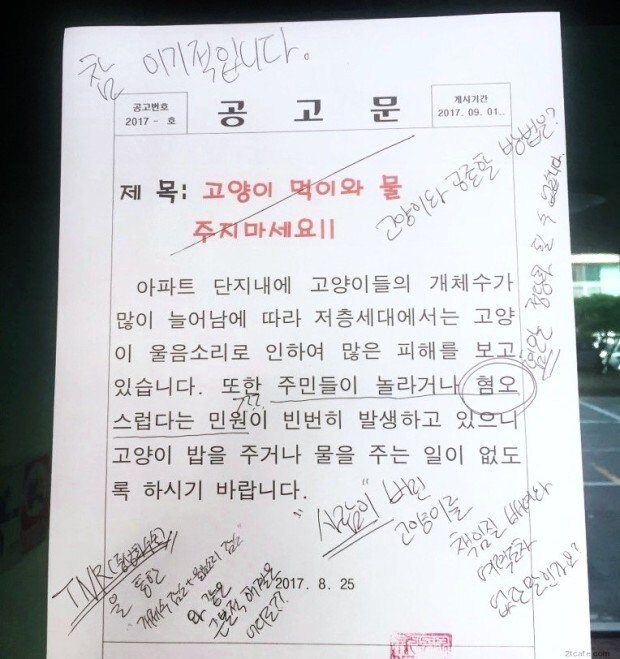 참 이기적입니다.
공고번호
2017 - 호
공 고 문
게시기간
2017. 09. 01..
제 목: 고양이 먹이와 물
주지마세요!!
고양이와 공존할 방법은?
혐오는 정당화 될 수 없습니다.
아파트 단지내에 고양이들의 개체수가
많이 늘어남에 따라 저층세대에서는 고양
이 울음소리로 인하여 많은 피해를 보고
있습니다. 또한 주민들이 놀라거나 혐오
스럽다는 민원이 빈번히 발생하고 있으니
???
고양이 밥을 주거나 물을 주는 일이 없도
록 하시기 바랍니다.
"사람이" 버린
고양이를
책임질
없단 말인가요?
TNR(중성화수술)
을 통한
개체수 감소 + 울음소리 감소
와 같은
근본적 해결은
2017. 8. 25
2tcafe.com